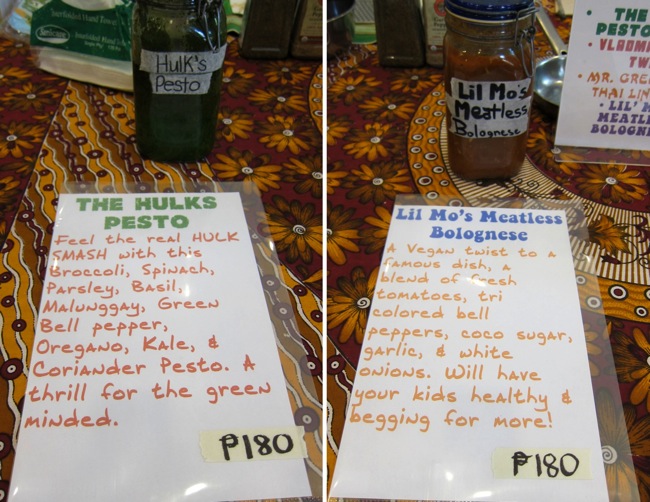 Interfolded Hand Towel
Interfolded Hand Tow
Hulk's
Pesto
THE HULKS
PESTO
Feel the real HULK
SMASH with this
Broccoli, Spinach,
Parsley, Basil,
Malunggay, Green
Bell pepper,
Oregano, Kale, &
Coriander Pesto. A
thrill for the green
minded.
₱180
Lil Mo's
Meatless
Bolognese
THE
PESTO
TW
MR. GREE
THAI LIN
LIL' M
MEATLE
BOLOGN
Lil Mo's Meatless
Bolognese
A Vegan twist to a
famous dish, a
blend of fresh
tomatoes, tri
colored bell
peppers, coco sugar,
garlic, & white
onions. Will have
your kids healthy &
begging for more!
₱180